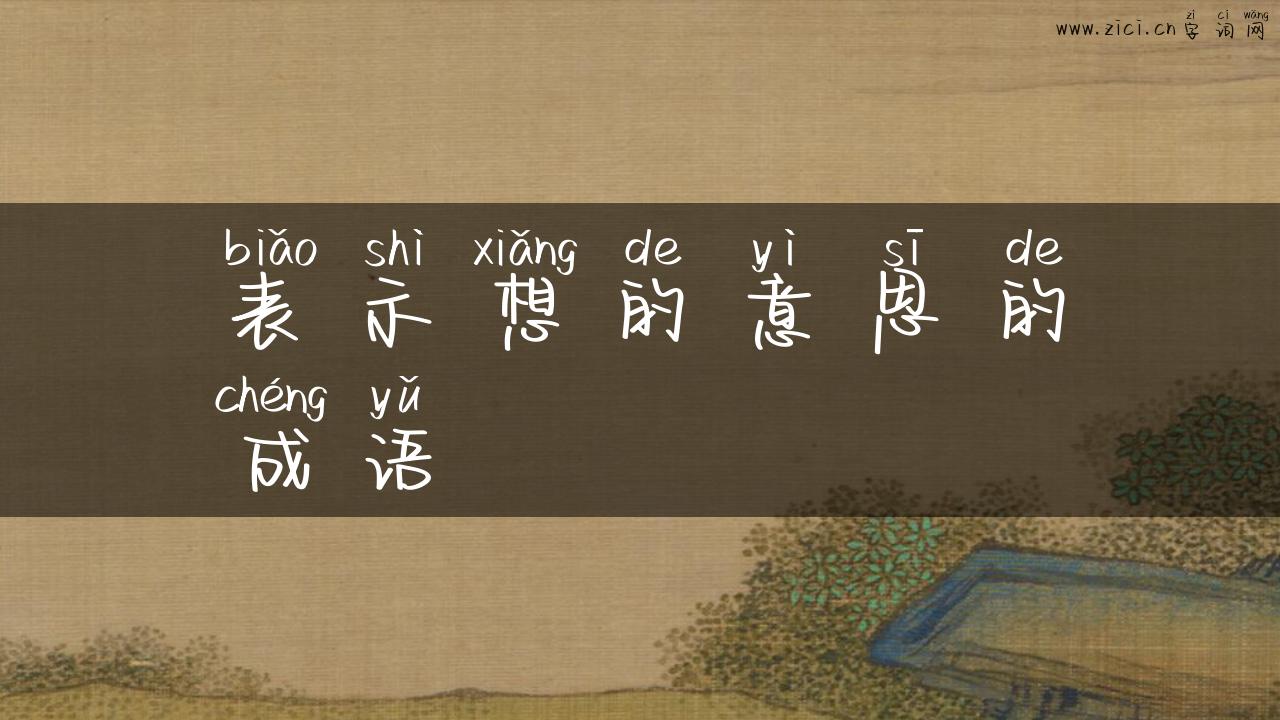 zì cí wǎng
www.zici.cn 字 词 网
biǎo shì xiǎng de yì sī de
表 示 想 的 意 思 的
chéng yǔ
成 语